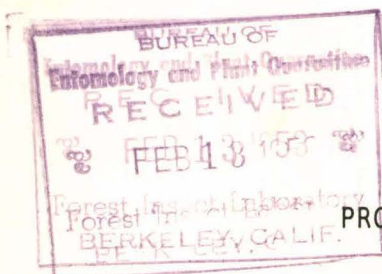 BUREAU OF
Entomology and Plant Quarantine
RECEIVED
FEB 13 1953
Forest Insect Laboratory
BERKELEY, CALIF.
PRO